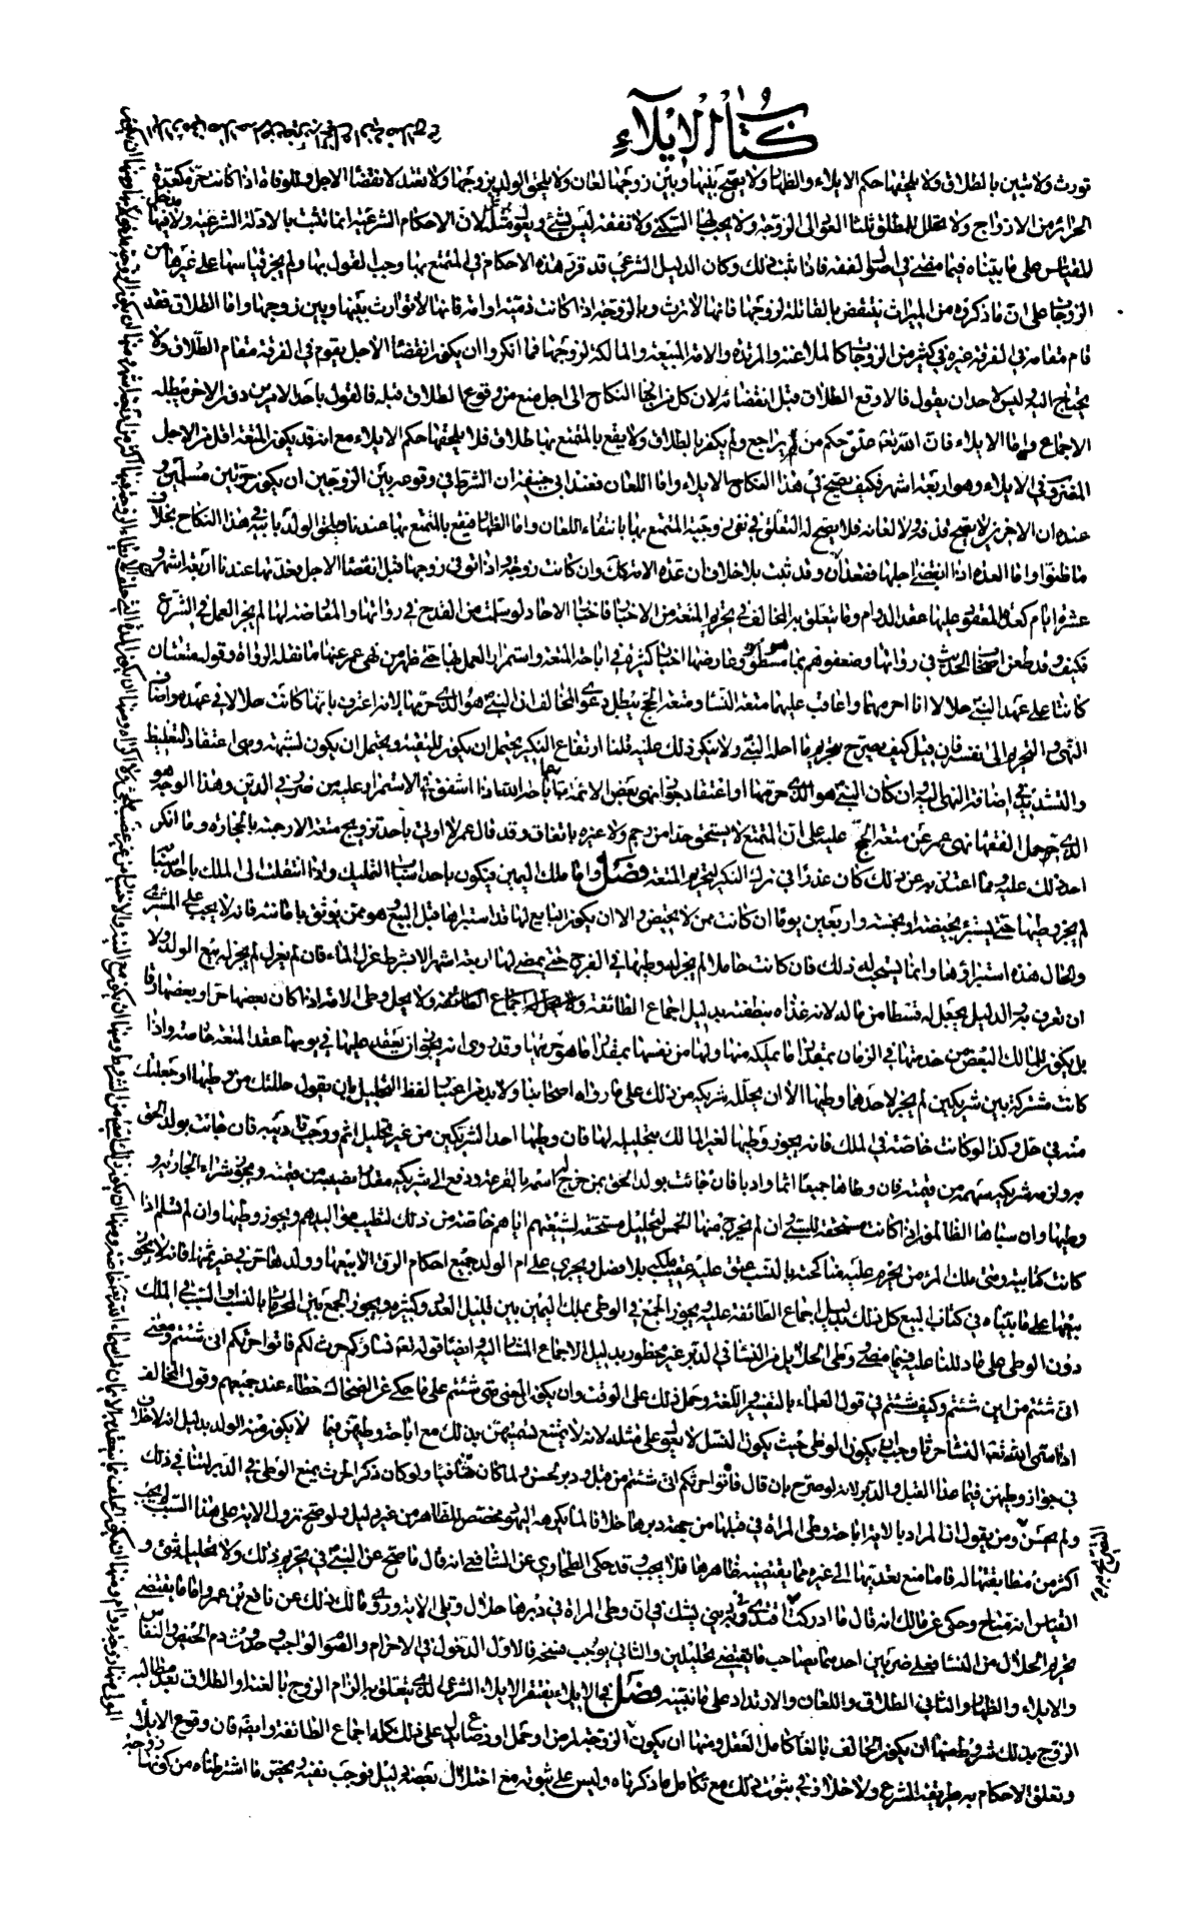 كتاب الإيلاء
تورث ولا تبين بالطلاق ولا يلحقها حكم الايلاء والظهار ولا يصح بينها وبين زوجها لعان ولا يلحق الولد بزوجها ولا تعتد لانقضاء الاجل وللوفاة اذا كانت حرة كعدة
الحرائر من الازواج ولا تحلل المطلق ثلثا العود الى الزوجة ولا يجب لها السكنى ولا نفقة ليس بشئ لان الاحكام الشرعية انما تثبت بالادلة الشرعية ولا
للقياس على ما بيناه فيما مضى في اصول الفقه فاذا ثبت ذلك وكان الدليل الشرعي قد قرر هذه الاحكام في المتمتع بها وجب القول بها ولم يجز قياسها على غيرها من
الزوجات على ان ما ذكروه من الميراث ينتقض بالقاتلة لزوجها فانها لا ترث وبالزوجة اذا كانت ذمية او امة فانها لا توارث بينها وبين زوجها واما الطلاق فقد
قام مقامه في الفرقة غيره في كثير من الزوجات كالملاعنة والمرتدة والامة المبيعة والمالكة لزوجها فما انكروا ان يكون انقضاء الاجل يقوم في الفرقة مقام الطلاق ولا
يحتاج اليه وليس لاحد ان يقول فالا وقع الطلاق قبل انقضائه لان كل من اجاز النكاح الى اجل منع من وقوع الطلاق قبله فالقول باحد الامرين دون الاخر يبطله
الاجماع واما الايلاء فان الله تعالى علق حكم من لم يراجع ولم يكفر بالطلاق ولا يقع بالمتمتع بها طلاق فلا يلحقها حكم الايلاء مع انه قد يكون المتعة اقل من الاجل
المضروب في الايلاء وهو اربعة اشهر فكيف يصح في هذا النكاح الايلاء واما اللعان فعند ابي حنيفة ان الشرط في وقوعه بين الزوجين ان يكونا حرين مسلمين و
عنده ان الاخرس لا يصح قذفه ولا لعانه فلا يصح له التعلق في نفي زوجية المتمتع بها بانتفاء اللعان واما الظهار فيقع بالمتمتع بها عندنا ويلحق الولد بابيه في هذا النكاح بخلاف
ما ظنوا واما العدة اذا انقضى اجلها
عشرة ايام كعدة المعقود عليها عقد الدوام وما يتعلق به المخالف في تحريم المتعة من الاخبار فاخبار الاحاد لو سلمت من القدح في رواتها والمعارضة لها لم يجز العمل في الشرع
فكيف وقد طعن اصحاب الحديث في رواتها وضعفوهم بما هو مسطور وعارضها اخبار كثيرة في اباحة المتعة واستمرار العمل بها حتى ظهر من نهى عمر عنها ما نقله الرواة وقوله متعتان
كانتا على عهد النبي حلالا انا احرمهما واعاقب عليهما متعة النساء ومتعة الحج يبطل دعوى المخالف ان النبي هو الذي حرمها لانه اعترف بانها كانت حلالا في عهده واضاف
النهي والتحريم الى نفسه فان قيل كيف يصرح بتحريم ما احله النبي ولا ينكر ذلك عليه قلنا ارتفاع النكير يحتمل ان يكون للتقية ويحتمل ان يكون لشبهة وهي اعتقاد التغليظ
والتشديد في اضافة النهي اليه وان كان النبي هو الذي حرمها او اعتقاد جواز نهي بعض الائمة عما اباحه الله اذا اشفق في الاستمرار عليه من ضرر في الدين وهذا الوجه هو
الذي حمل الفقهاء نهي عمر عن متعة الحج عليه على ان المتمتع لا يستحق حدا من رجم ولا غيره باتفاق وقد قال عمر لا اوتى باحد تزوج متعة الا رجمته بالحجارة وما انكر
احد ذلك عليه ومما اعتذر به عن ذلك كان عذرا في ترك النكير لتحريم المتعة فصل واما ملك اليمين فيكون باحد اسباب التمليك واذا انتقلت الى الملك باحد اسبابه
لم يجز وطيها حتى يستبرئ بحيضة او بخمسة واربعين يوما ان كانت ممن لا تحيض والا ان يكون البايع لها قد استبراها قبل البيع وهو ممن يوثق بامانته فانه لا يجب على المشتري
والحال هذه استبراؤها وانما يستحب له ذلك فان كانت حاملا لم يجز له وطيها في الفرج حتى يمضي لها اربعة اشهر الا بشرط عزل الماء فان لم يعزل لم يجز له بيع الولد ولا
ان يعترف به بل يجعل له قسطا من ماله لانه غذاه بنطفته بدليل اجماع الطائفة ولا يحل وطى الامة اذا كان بعضها حرا وبعضها رقا
بل يكون لمالك البعض من خدمتها في الزمان بمقدار ما يملكه منها ولها من نفسها بمقدار ما هو حر منها وقد روى انه يجوز ان يعقد عليها في يومها عقد المتعة خاصة واذا
كانت مشتركة بين شريكين لم يجز لاحدهما وطيها الا ان يحلله شريكه من ذلك على ما رواه اصحابنا ولا بد من اعتبار لفظ التحليل بان يقول حللتك من وطيها او جعلتك
منه في حل وكذا لو كانت خاصة في الملك فانه يجوز وطيها لغير المالك بتحليله لها فان وطيها احد الشريكين من غير تحليل اثم ووجب تاديبه فان جائت بولد لحق
به ولزمه لشريكه سهمه من قيمته فان وطئاها جميعا اثما وادبا فان جائت بولد الحق بمن خرج اسمه بالقرعة ودفع الى شريكه مقدار نصيبه من قيمته ويجوز شراء الجارية و
وطيها وان سباها الظالمون اذا كانت مستحقة للسبي وان لم يخرج منها الخمس لتحليل مستحقه لشيعتهم اياهم خاصة من ذلك لتطيب مواليدهم ويجوز وطيها وان لم تسلم اذا
كانت كتابية ومتى ملك المرء من يحرم عليه مناكحته بالنسب عتق عليه عقيب ملكه بلا فصل ويجري على ام الولد جميع احكام الرق الا بيعها وولدها حي في غير ثمنها فانه لا يجوز
بيعها على ما بيناه في كتاب البيع كل ذلك بدليل اجماع الطائفة عليه ويجوز الجمع في الوطي بملك اليمين بين قليل العدد وكثيره ويجوز الجمع بين المحرمات بالنسب او السبب في الملك
دون الوطي على ما دللنا عليه فيما مضى ووطى الحلائل من النساء في الدبر غير محظور بدليل الاجماع المشار اليه وايضا قوله تعالى نساؤكم حرث لكم فاتوا حرثكم انى شئتم ومعنى
انى شئتم من اين شئتم وكيف شئتم في قول العلماء بالتفسير واللغة وحمل ذلك على الوقت وان يكون المعنى متى شئتم على ما حكي عن الضحاك خطاء عند جميعهم وقول المخالف
اذا سمى الله تعالى النساء حرثا وجب ان يكون الوطي حيث يكون النسل لا يعول على مثله لانه لا يمتنع تسميتهن بذلك مع اباحة وطيهن فيما لا يكون منه الولد بدليل انه لا خلاف
في جواز وطيهن فيما عدا القبل والدبر لانه لو صرح بان قال فاتوا حرثكم انى شئتم من قبل ودبر لحسن ولما كان متنافيا ولو كان ذكر الحرث يمنع الوطي في الدبر لتنافى ذلك
ولم يحسن ومن يقول ان المراد بالاية اباحة وطى المراة في قبلها من جهة دبرها خلافا لما يكرهه اليهود مخصص للظاهر من غير دليل ولو صح نزول الاية على هذا السبب لم يجب
اكثر من مطابقتها له فاما منع تعديها الى غيره مما يقتضيه ظاهرها فلا يجب وقد حكى الطحاوي عن الشافعي انه قال ما صح عن النبي في تحريم ذلك ولا تحليله شئ و
القياس انه مباح وحكى عن مالك انه قال ما ادركت احدا اقتدي به في ديني يشك في ان وطى المراة في دبرها حلال وتلى الاية وروى مالك ذلك عن نافع عن ابن عمر واما ما يقتضي
تحريم الحلال من النساء فعلى ضربين احدهما يصاحب ما يقتضي تحليلهن والثاني يوجب فسخه فالاول الدخول في الاحرام والصوم الواجب وحدوث دم الحيض والنفاس
والايلاء والظهار والثاني الطلاق واللعان والارتداد على ما نبينه فصل في الايلاء يفتقر الايلاء الشرعي الذي يتعلق به الزام الزوج بالفئة او الطلاق بعد مطالبة
الزوجة بذلك شروط منها ان يكون الحالف بالغا كامل العقل ومنها ان يكون
وتعلق الاحكام به طريقه الشرع ولا خلاف في ثبوت ذلك مع تكامل ما ذكرناه وليس على ثبوته مع اختلال بعضه دليل فوجب نفيه ويخص ما اشترطناه من كونها